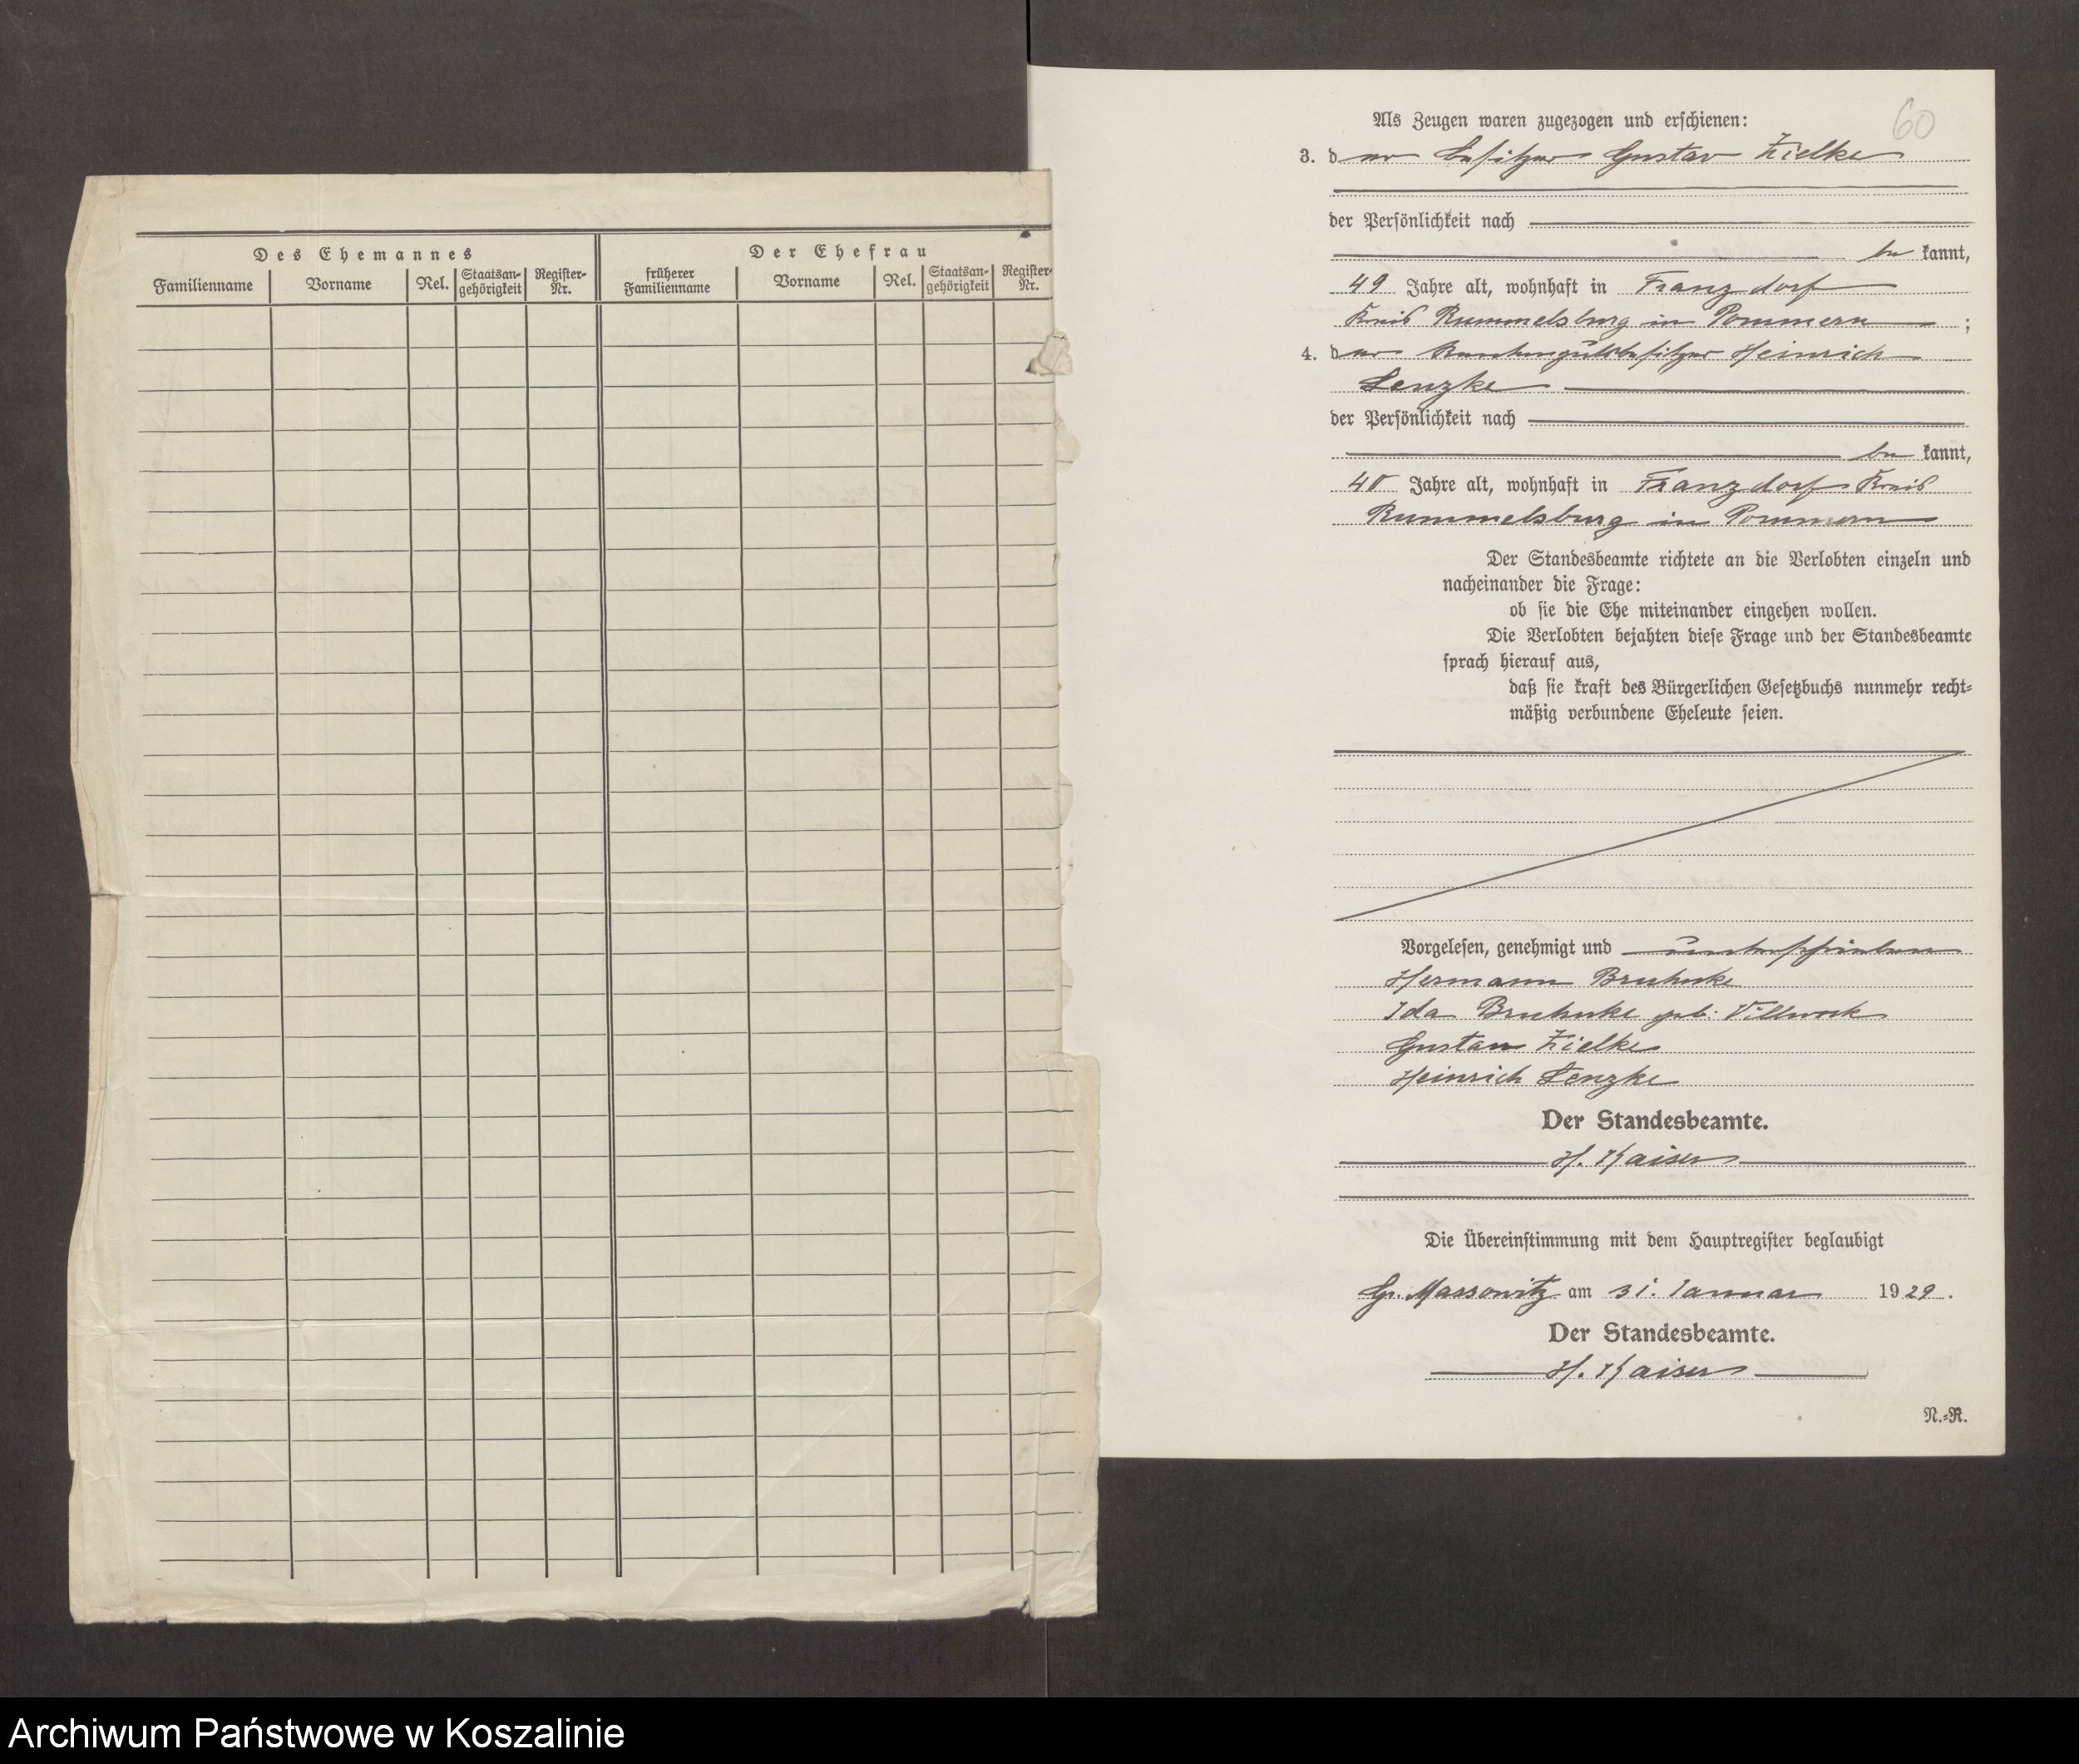 Des Ehemannes
Der Ehefrau
Familienname Vorname Rel. Staatsan-gehörigkeit Register-Nr. früherer Familienname Vorname Rel. Staatsan-gehörigkeit Register-Nr.
60
Als Zeugen waren zugezogen und erschienen:
3. der Besitzer Gustav Zielke
der Persönlichkeit nach
be kannt,
49 Jahre alt, wohnhaft in Franzdorf
Kreis Rummelsburg in Pommern ;
4. der Rentengutsbesitzer Heinrich
Lenzke
der Persönlichkeit nach
be kannt,
Jahre alt, wohnhaft in Franzdorf Kreis
Rummelsburg in Pommern
Der Standesbeamte richtete an die Verlobten einzeln und
nacheinander die Frage:
ob sie die Ehe miteinander eingehen wollen.
Die Verlobten bejahten diese Frage und der Standesbeamte
sprach hierauf aus,
daß sie kraft des Bürgerlichen Gesetzbuchs nunmehr recht-
mäßig verbundene Eheleute seien.
Vorgelesen, genehmigt und unterschrieben
Hermann Bruhnke
Ida Bruhnke geb. Villwock
Gustav Zielke
Heinrich Lenzke
Der Standesbeamte.
H. Kaiser
Die Übereinstimmung mit dem Hauptregister beglaubigt
Gr. Massowitz am 31. Januar 1929.
Der Standesbeamte.
H. Kaiser
N.-R.
Archiwum Państwowe w Koszalinie